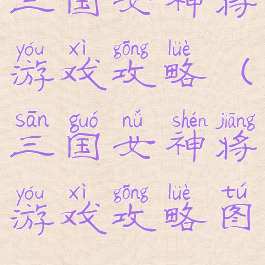 三国女神将
yóu xì gōng lüè
游戏攻略（
sān guó nǚ shén jiāng
三国女神将
yóu xì gōng lüè tú
游戏攻略图